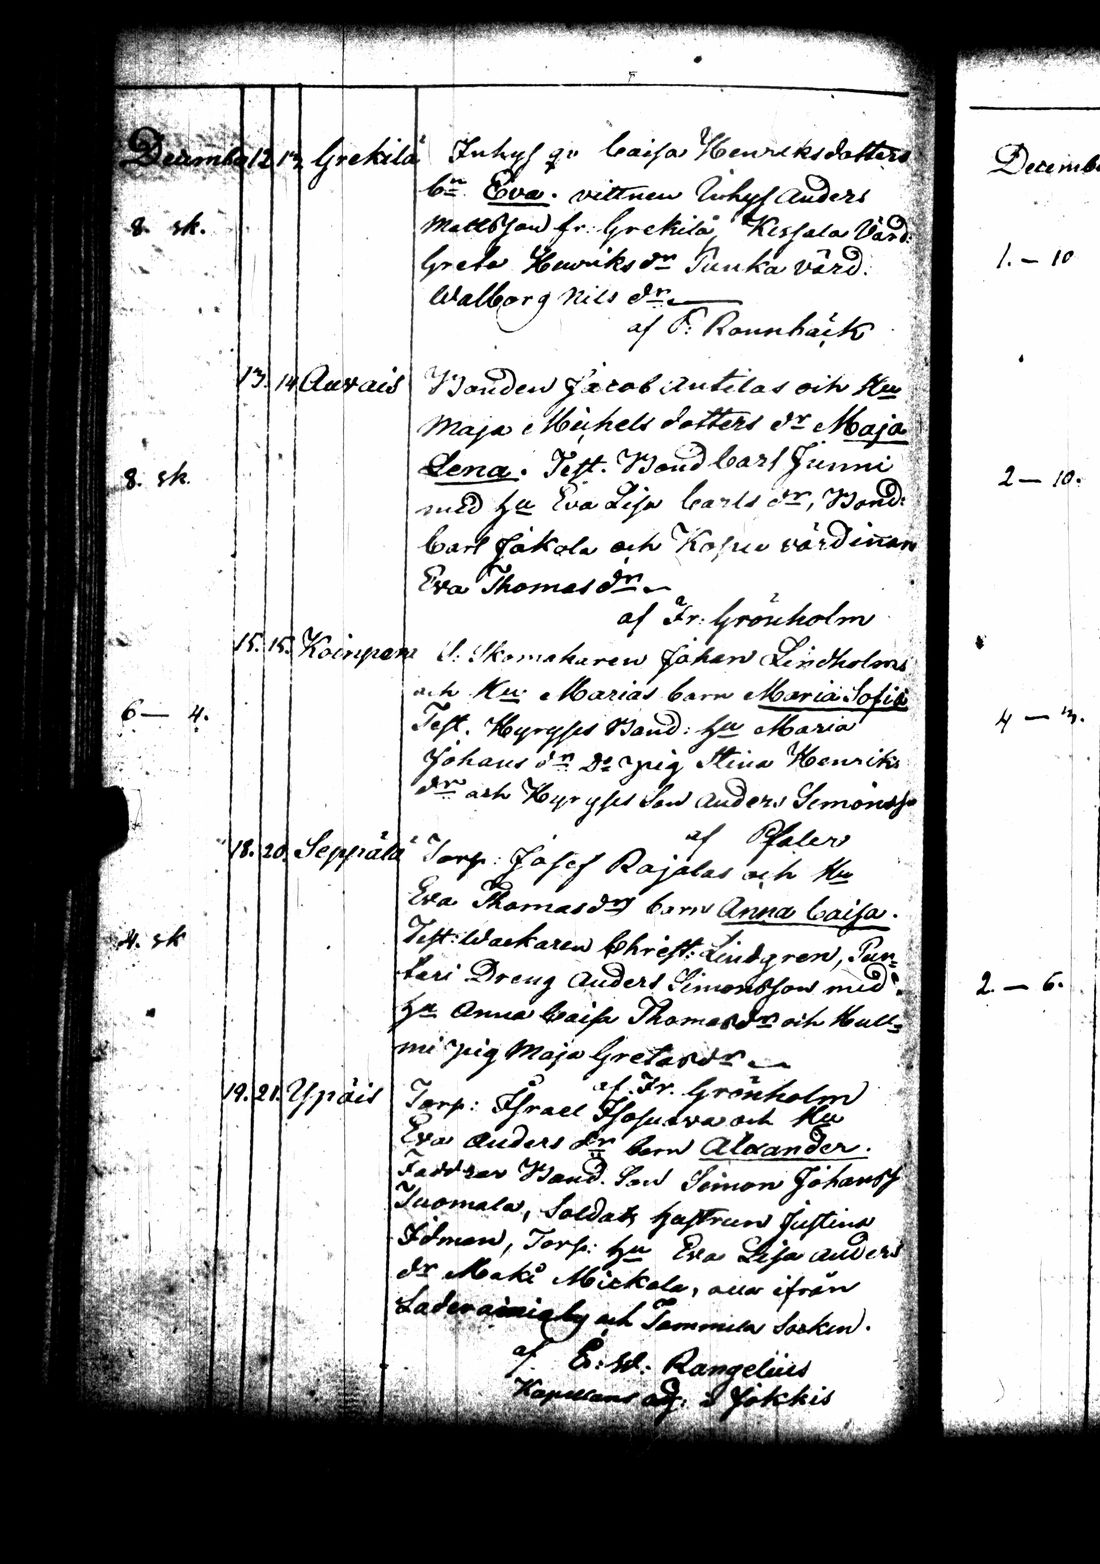 December 12. 13. Grekilä Inhys qv Caisa Henriksdotters
bn Eva. vittnen Inhys Anders
8. sk.
Mattsson fr: Grekilä, Kessala Värd:
Greta Henriks dr Junka värd:
Walborg Nils dr
af F: Rönnbäck
13. 14 Auvais Bonden Jacob Antilas och Hu
Maja Michels dotters dr Maja
Lena. Test. Bond Carl Junni
8. sk.
med hu Eva Lisa Carls dr, Bond:
Carl Jakola och Kopu värdinnan
Eva Thomas dr
af Fr: Grönholm
15. 15. Koinperä S: Skomakaren Johan Lindholms
och Hu Marias barn Maria Sofia
6 — 4.
Test. Hyrysis Bond: hu Maria
Johans dr Do pig Stina Henriks
dr och Hyrysis Son Anders Simonss
af Pfaler
18. 20. Seppälä Torp: Josef Rajalas och Hu
Eva Thomas drs barn Anna Caisa.
4. sk
Test: Wackaren Christ: Lindgren, Pun-
kari Dreng Anders Simonsson med
hu Anna Caisa Thomas dr och Hull-
mi pig Maja Gretas dr
af. Fr. Grönholm
19. 21. Ypäis Torp: Israel Isosuvas och Hu
Eva Anders dr barn Alexander.
Faddrar Bond. Son Simon Johanss
Tuomala, Soldats hustrun Justina
Idman, Torp: hu Eva Lisa Anders
dr Maki Mickola, alla ifrån
och Tammela Socken.
af E: W: Rangelius
Kapellans adj. i Jokkis
December
1. — 10
2 — 10.
4 — 3.
2. — 6.